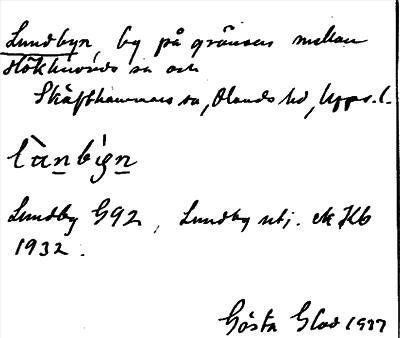 Lundbyn, by på gränsen mellan
Hökhuvuds sn och
Skäfthammars sn, Olands hd, Upps. l.
lànbýn
Lundby G92, Lundby utj. ek Kb
1932.
Gösta Glad 1937